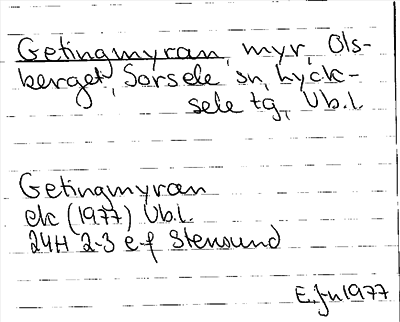 Getingmyran, myr, Ols-
berget, Sorsele sn, Lyck-
sele tg, Vb.l.
Getingmyran
ek (1977) Vb.l.
24H 2-3 e-f Stensund
E.Jn 1977